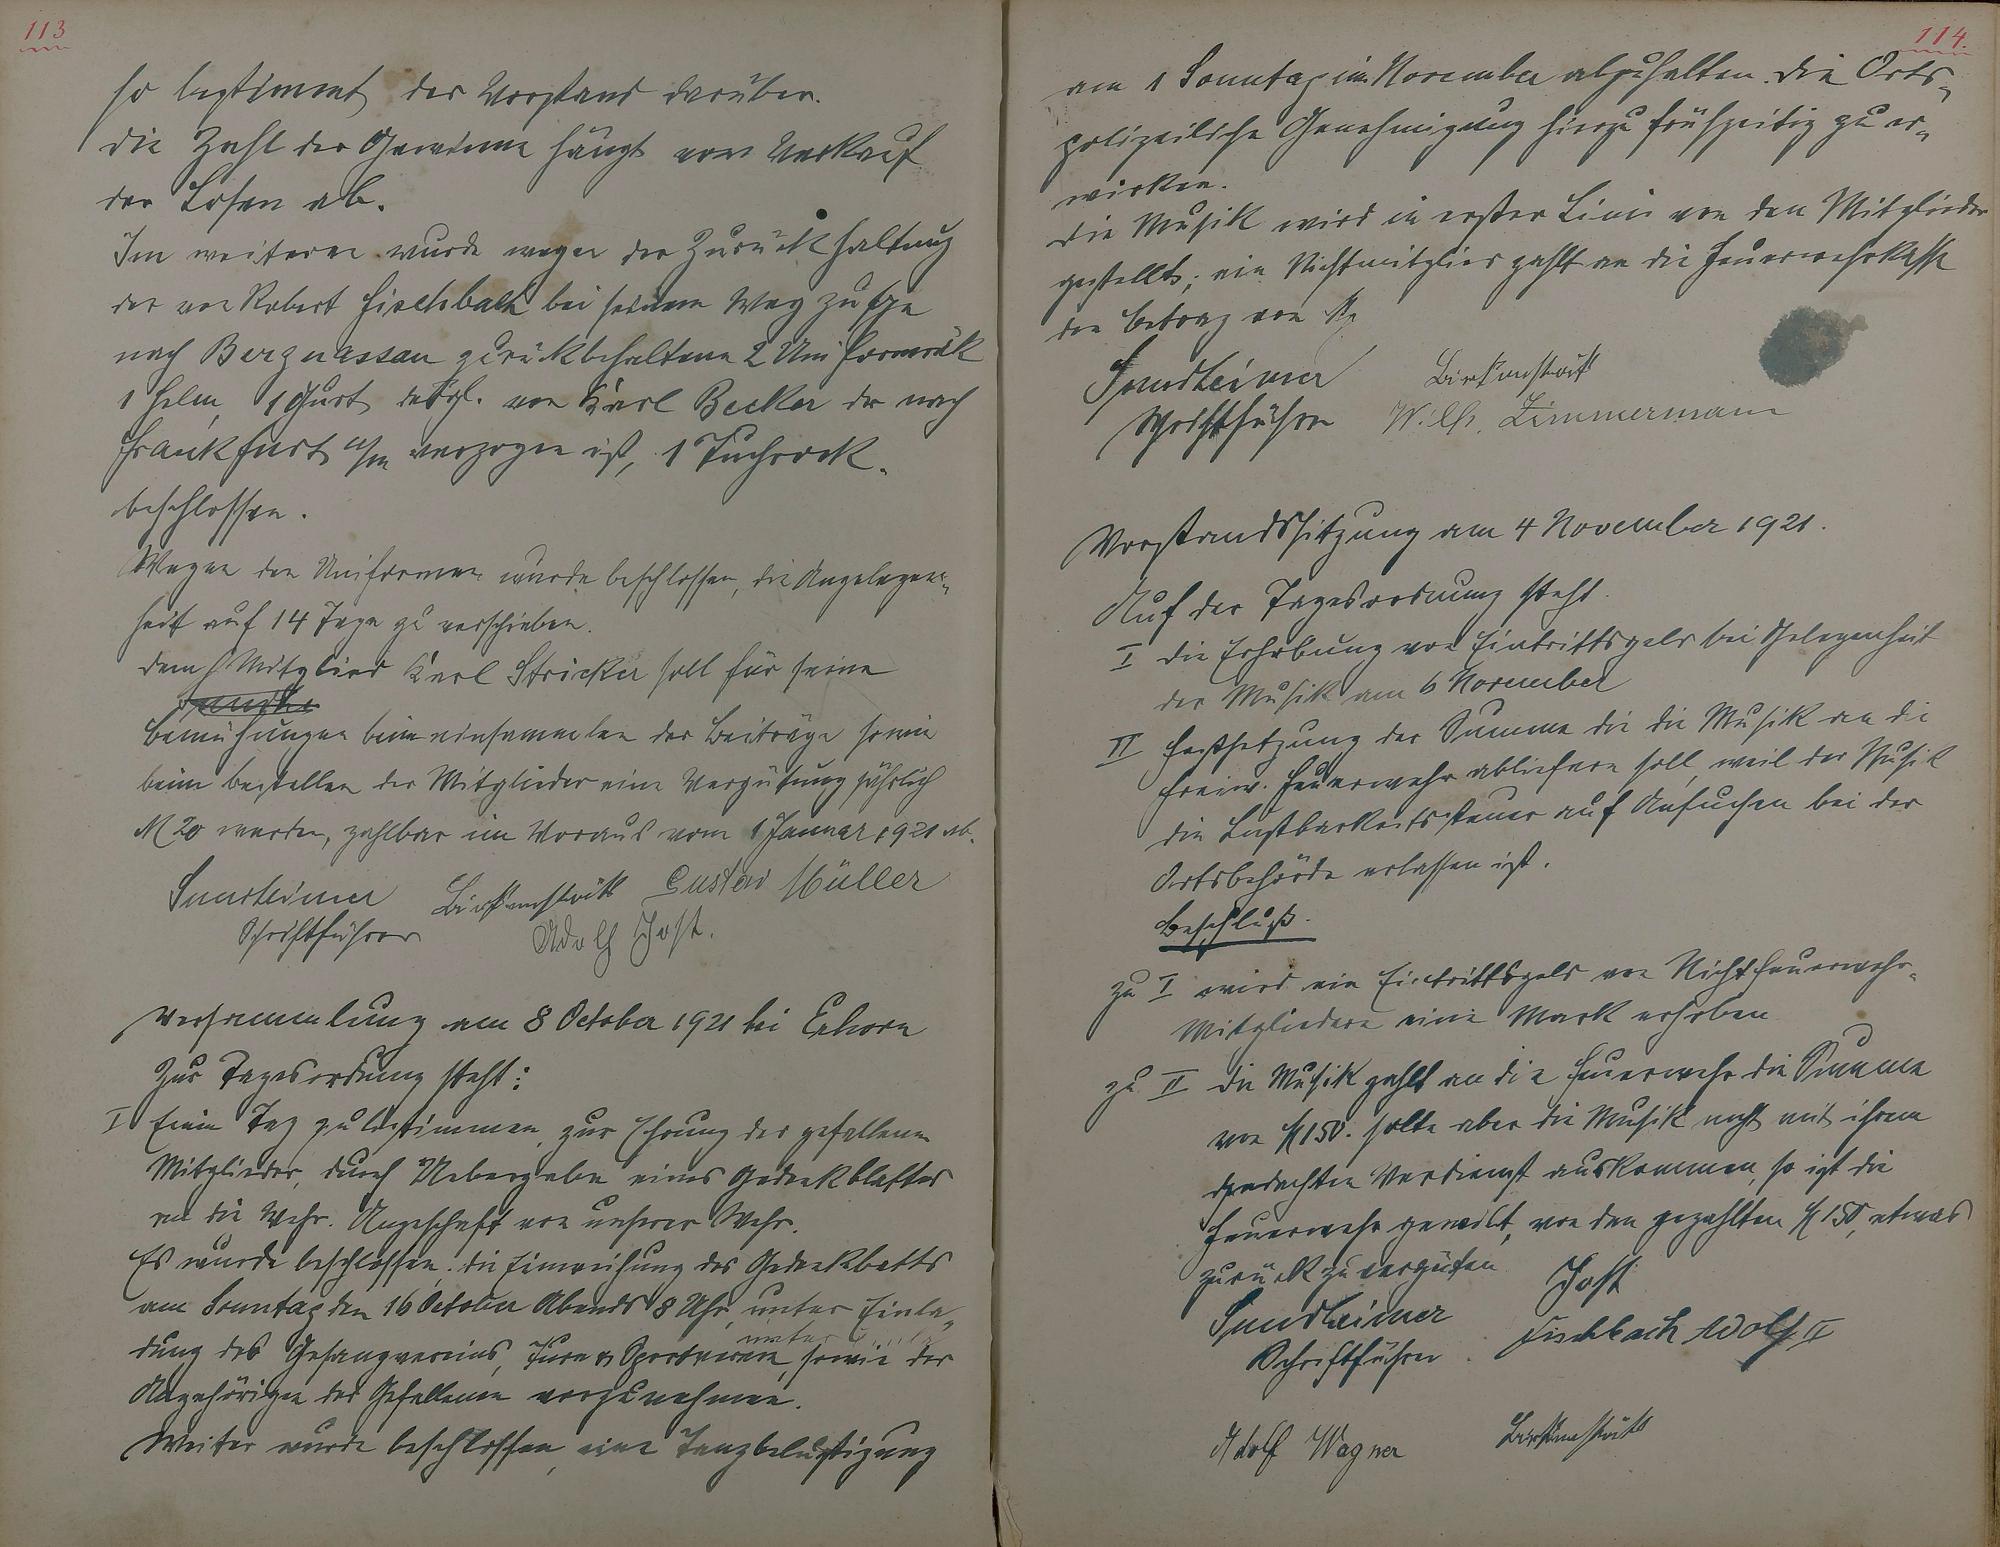 113
so bestimmt der Vorstand darüber.
Die Zahl der Gewinne hängt vom Verkauf
der Losen ab.
Im weiteren wurde wegen der Zurückhaltung
der von Robert Fischbach bei seinem Wegzuge
nach Bergnassau zurückbehaltene 2 Uniformröck
1 Helm, 1 Gurt, desgl. von Karl Becker der nach
Frankfurt a/m verzogen ist, 1 Tuchrock.
beschlossen.
Wegen den Uniformen wurde beschlossen, die Angelegen-
heit auf 14 Tage zu verschieben.
Dem Mitglied Karl Stricker soll für seine
Bemühungen beim einsammelen der Beiträge sowie
beim bestellen der Mitglieder eine Vergütung jährlich
M 20 werden, zahlbar im Voraus vom 1 Januar 1921 ab.
Sundheimer Birkenstock Gustav Müller
Schriftführer Adolf Jost.
Versammlung am 8 October 1921 bei
Zur Tagesordnung steht:
I Einen Tag zu bestimmen, zur Ehrung der gefallenen
Mitglieder, durch Uebergabe eines Gedenkblattes
an die Wehr. Angeschafft von unserer Wehr.
Es wurde beschlossen, die Einweihung des Gedenkbatts
am Sonntag den 16 October Abends 8 Uhr, unter Einla-
dung des Gesangvereins, Turn & Sportverein, sowie der
Angehörigen der Gefallenen vorzunehmen.
Weiter wurde beschlossen, eine Tanzbelustigung
114.
am 1 Sonntag im November abzuhalten. Die Orts-
polizeiliche Genehmigung hierzu frühzeitig zu er-
wirken.
Die Musik wird in erster Linie von den Mitglieder
gestellt; ein Nichtmitglied zahlt an die Feuerwehrkasse
den Betrag von M
Sundheimer Birkenstock
Schriftführer Wilh. Zimmermann
Vorstandssitzung am 4 November 1921.
Auf der Tagesordnung steht.
I Die Erhebung von Eintrittsgeld bei Gelegenheit
der Musik am 6 November
II Festsetzung der Summe die die Musik an die
freiw. Feuerwehr abliefern soll, weil der Musik
die Lustbarkeitssteuer auf Ansuchen bei der
Ortsbehörde erlassen ist.
Beschluß.
zu I wird ein Eintrittsgeld von Nichtfeuerwehr-
Mitgliedern eine Mark erhoben
zu II Die Musik zahlt an die Feuerwehr die Summe
von M 150. sollte aber die Musik nicht mit ihrem
gedachten Verdienst auskommen, so ist die
Feuerwehr gewillt, von den gezahlten M 150, etwas
zurück zu vergüten
Sundheimer Jost
Schriftführer. Fischbach Adolf II
Adolf Wagner Birkenstock